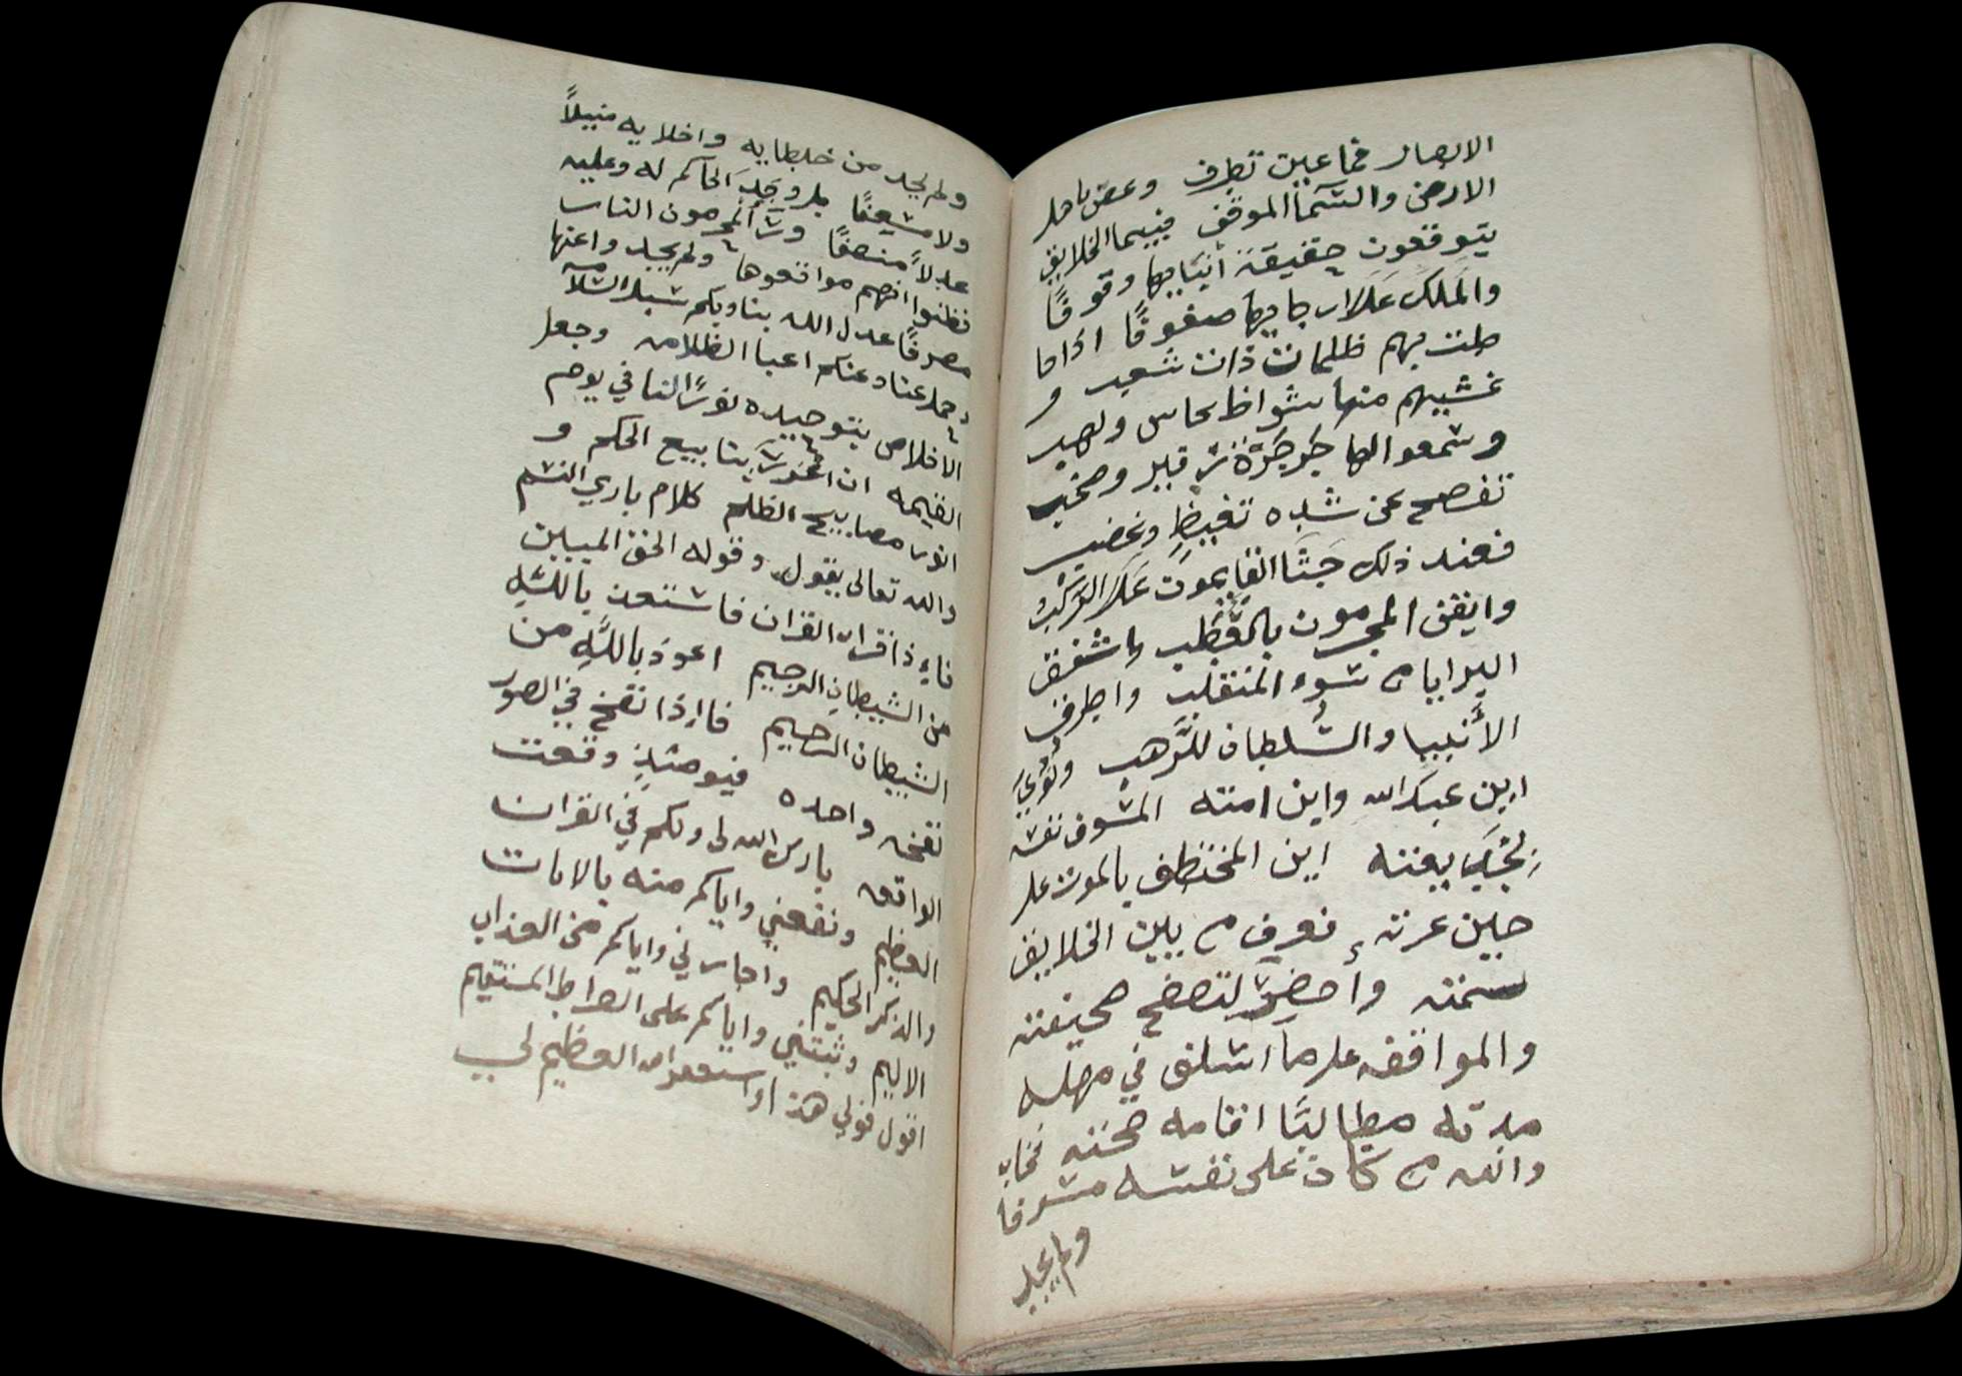 الابصار فما عين تطرف وغص باهل
الارض والسما الموقف فبينما الخلايق
يتوقعون حقيقة انبايها وقوفًا
والملك على ارجايها صفوفًا اذ احا
طت بهم ظلمات ذات شعب و
غشيهم منها شواظ نحاس ولهب
وسمعوا لها جرجرة زفير وصخب
تفصح عن شده تغيظ وغضب
فعند ذلك جثا القايمون على الركب
وايقن المجرمون بالعطب واشفق
البرايا من سوء المنقلب واطرق
الأنبيا والسلطان للرهب ونودي
اين عبد الله واين امته المسوف نفسه
بعته اين المختطف بالموت على
حين غرته فعرف من بين الخلايق
سمته وأحضر لتصفح صحيفته
والمواقفه على ما اسلف في مهله
مدته مطالبًا اقامه حجته فخاب
والله من كان على نفسه مسرفا
ولم يجد
ولم يجد من خلطايه واخلايه منيلاً
ولا مسعفًا بل وجد الحاكم له وعليه
عدلاً منصفًا ورأ المجرمون النار
فظنوا انهم مواقعوها ولم يجدوا عنها
مصرفًا عدل الله بنا وبكم سبل السلامه
وحمل عنا وعنكم اعبا الظلامه وجعل
الاخلاص بتوحيده نورًا لنا في يوم
القيمه ان اغزر ينابيع الحكم و
انور مصابيح الظلم كلام باري النسم
والله تعالى يقول وقوله الحق المبين
فاءذا قرات القران فاستعذ بالله
من الشيطان الرجيم اعوذ بالله من
الشيطان الرجيم فااذا نفخ في الصور
نفخه واحده فيومئذ وقعت
الواقعه بارك الله لي ولكم في القران
العظيم ونفعني واياكم منه بالايات
والذكر الحكيم واجارني واياكم من العذاب
الاليم وثبتني واياكم على الصراط المستقيم
اقول قولي هذا واستغفر الله العظيم لي